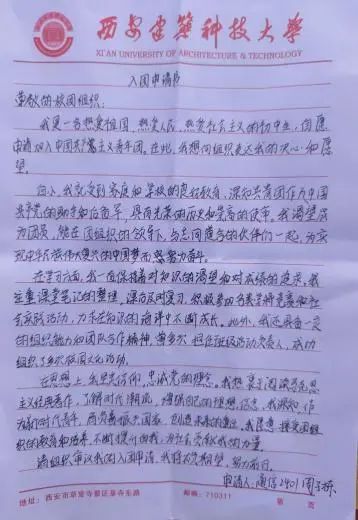 西安建筑科技大学
XI'AN UNIVERSITY OF ARCHITECTURE & TECHNOLOGY
入团申请书
尊敬的校团组织:
我是一名热爱祖国,热爱人民,热爱社会主义的初中生,自愿
申请加入中国共产主义青年团。在此,我想向组织表达我的决心和愿
望。
自入我就受到家庭和学校的良好教育,深知共青团作为中国
共产党的助手和后备军,具有光荣的历史和崇高的使命。我渴望成
为团员,能在团组织的领导下,与志同道合的伙伴们一起,为实
现中华民族伟大复兴的中国梦而努力奋斗。
在学习方面,我一直保持着对知识的渴望和对成绩的追求。我
注重课堂笔记的整理,课后及时复习,积极参加各类学科竞赛和社
会实践活动,力求在知识的海洋中不断成长。此外,我还具备一定
的组织能力和团队合作精神,曾多次担任班级活动负责人,成功
组织了多次校园文化活动。
在思想上,我坚定信仰,忠诚党的理念。我热衷于阅读马克思
主义经典著作,了解时代潮流,增强自己的理想信念。我深知,作
为新时代青年,肩负着振兴国家,创造未来的重任,我愿意接受团组
织的教育和培养,不断提升自我,为社会贡献我的力量。
请组织审议我的入团申请,我将不负期望,努力前行。
申请人:陶信2401 周子桥
地址:西安市草堂寺景区草寺东路 邮编:710311 第 页